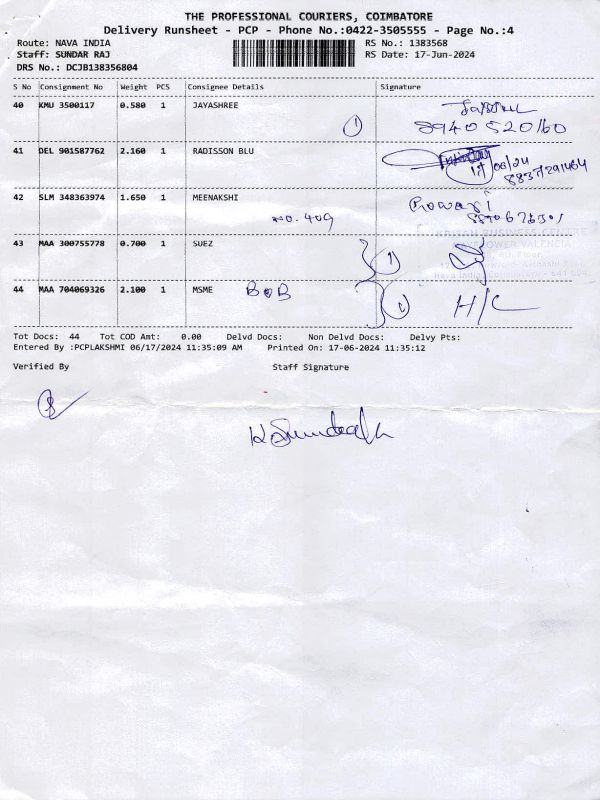 THE PROFESSIONAL COURIERS, COIMBATORE
Delivery Runsheet - PCP - Phone No.:0422-3505555 - Page No.:4
Route: NAVA INDIA RS No.: 1383568
Staff: SUNDAR RAJ RS Date: 17-Jun-2024
DRS No.: DCJB138356804
S No Consignment No Weight PCS Consignee Details Signature
40 KMU 3500117 0.580 1 JAYASHREE
1 8940520160
41 DEL 901587762 2.160 1 RADISSON BLU
8837291464
42 SLM 348363974 1.650 1 MEENAKSHI
NO. 409
KRISAN BUSINESS CENTRE
43 MAA 300755778 0.700 1 SUEZ 1
44 MAA 704069326 2.100 1 MSME BOB 1 H/C
Tot Docs: 44 Tot COD Amt: 0.00 Delvd Docs: Non Delvd Docs: Delvy Pts:
Entered By :PCPLAKSHMI 06/17/2024 11:35:09 AM Printed On: 17-06-2024 11:35:12
Verified By Staff Signature